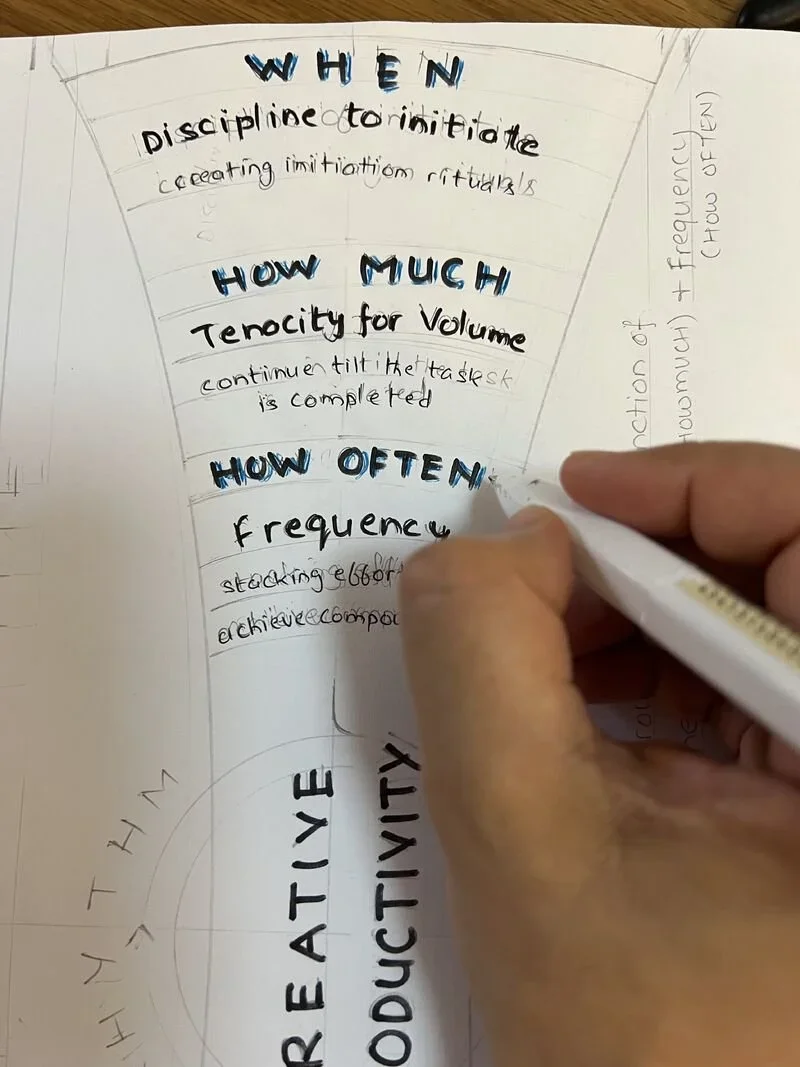 WHEN
Discipline to initiate
creating initiation rituals
HOW MUCH
Tenocity for Volume
continue till the task
is completed
HOW OFTEN
frequency
stacking
achieve
REATIVE
ODUCTIVITY
HYTHM
nction of
HOWMUCH) + Frequency
(HOW OFTEN)